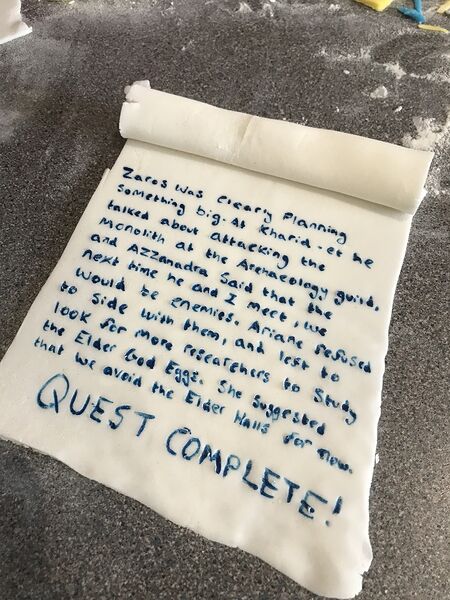 Zaros was clearly planning
something big. At Kharid-et he
talked about attacking the
Monolith at the Archaeology guild,
and AZZanadra said that the
next time he and I meet, we
would be enemies. Ariane refused
to side with them, and left to
look for more researchers to study
the Elder God Eggs. She suggested
that we avoid the Elder Halls for now.
QUEST COMPLETE!